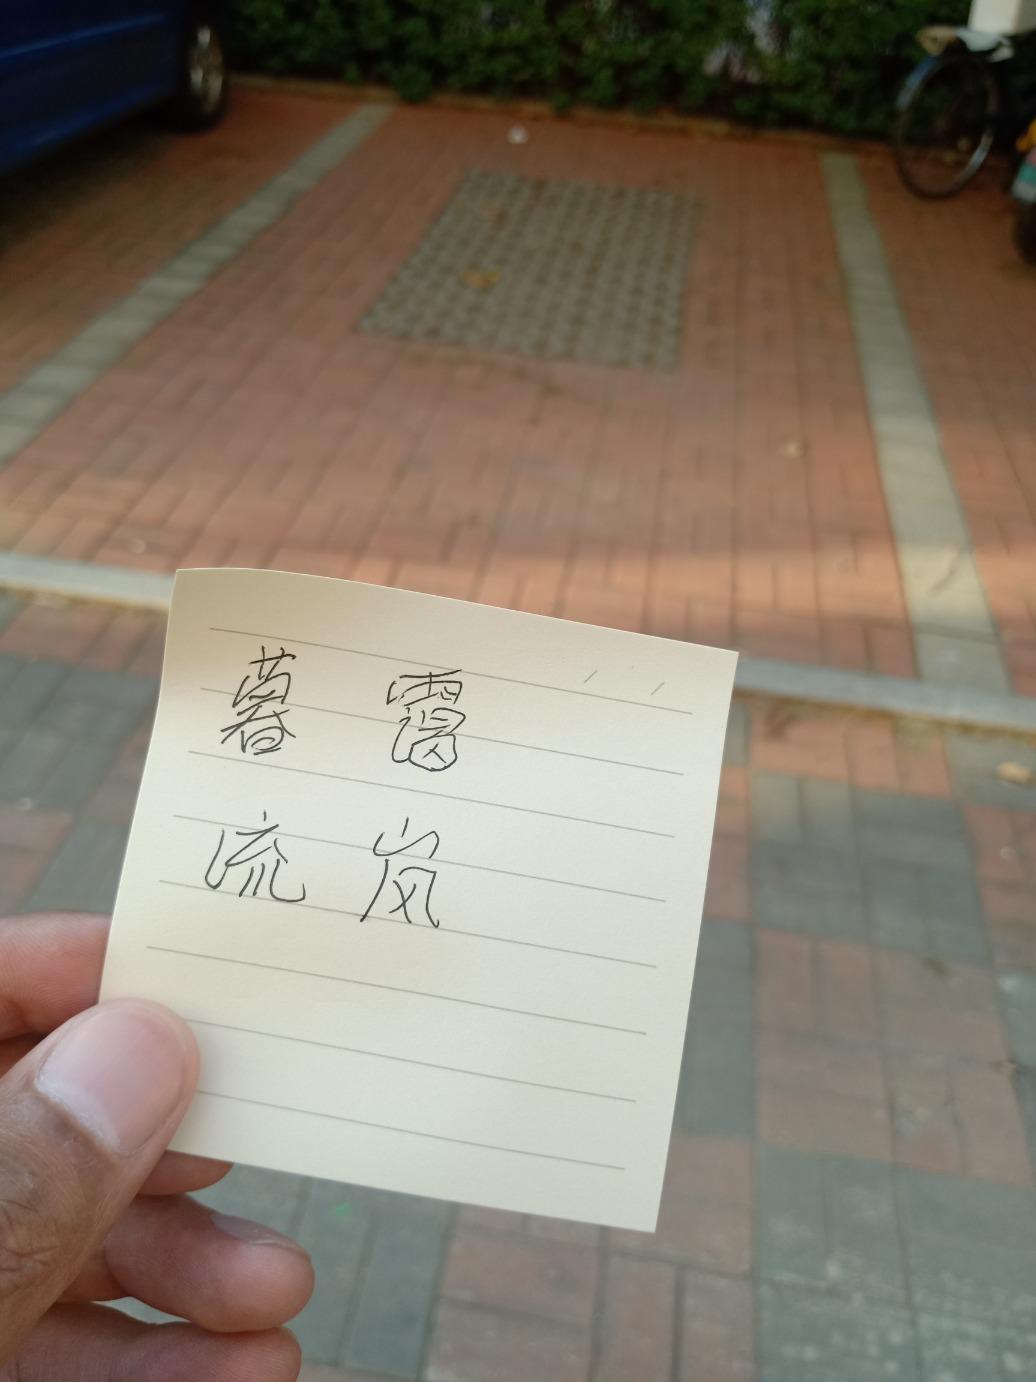 暮 霭
流 岚